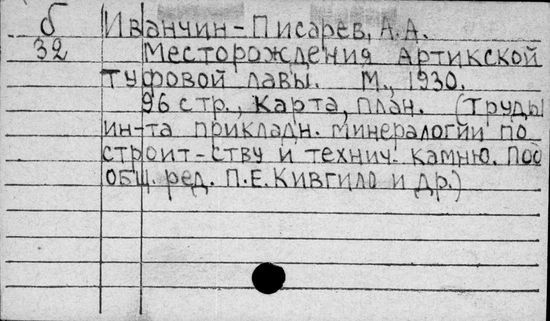 б Иванчин-Писарев, А.А.
32 Месторождения Артикской
туфовой лавы. М., 1930.
96 стр., карта, план. (Труды
ин-та прикладн. минералогии по
строит-ству и технич. камню. Под
общ. ред. П.Е. Кивгило и др.)